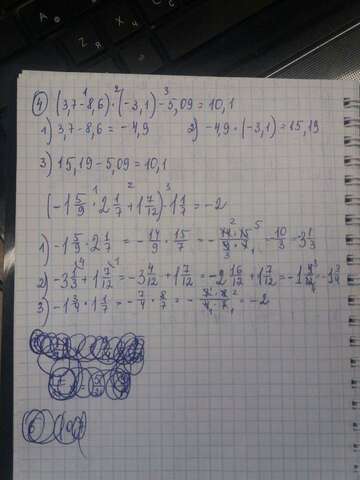 ④ (3,7-8,6)·(-3,1)-5,09=10,1
1) 3,7-8,6=-4,9 2) -4,9·(-3,1)=15,19
3) 15,19-5,09=10,1
(-1 5/9·2 1/7+1 7/12)·1 1/7=-2
1) -1 5/9·2 1/7=-14/9·15/7=-14·15/9·7=-10/3=-3 1/3
2) -3 1/3+1 7/12=-3 4/12+1 7/12=-2 16/12+1 7/12=-1 9/12=-1 3/4
3) -1 3/4·1 1/7=-7/4·8/7=-7·8/4·7=-2